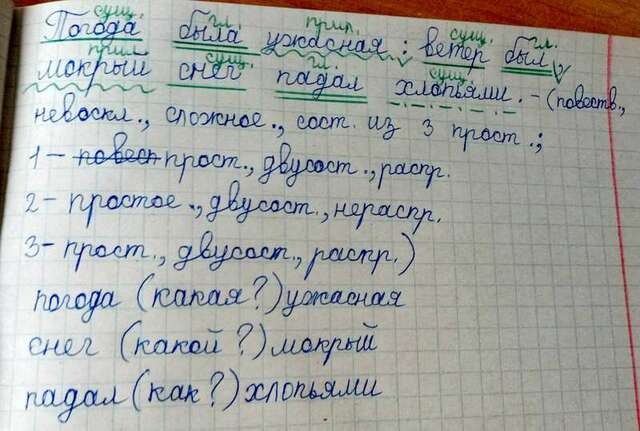 сущ. гл. прил. сущ. гл.
Погода была ужасная: ветер был,
прил. сущ. гл. сущ.
мокрый снег падал хлопьями. - (повеств.,
невоскл., сложное., сост. из 3 прост.;
1 - повесп прост., двусост., распр.
2 - простое., двусост., нераспр.
3- прост., двусост., распр.)
погода (какая?) ужасная
снег (какой?) мокрый
падал (как?) хлопьями